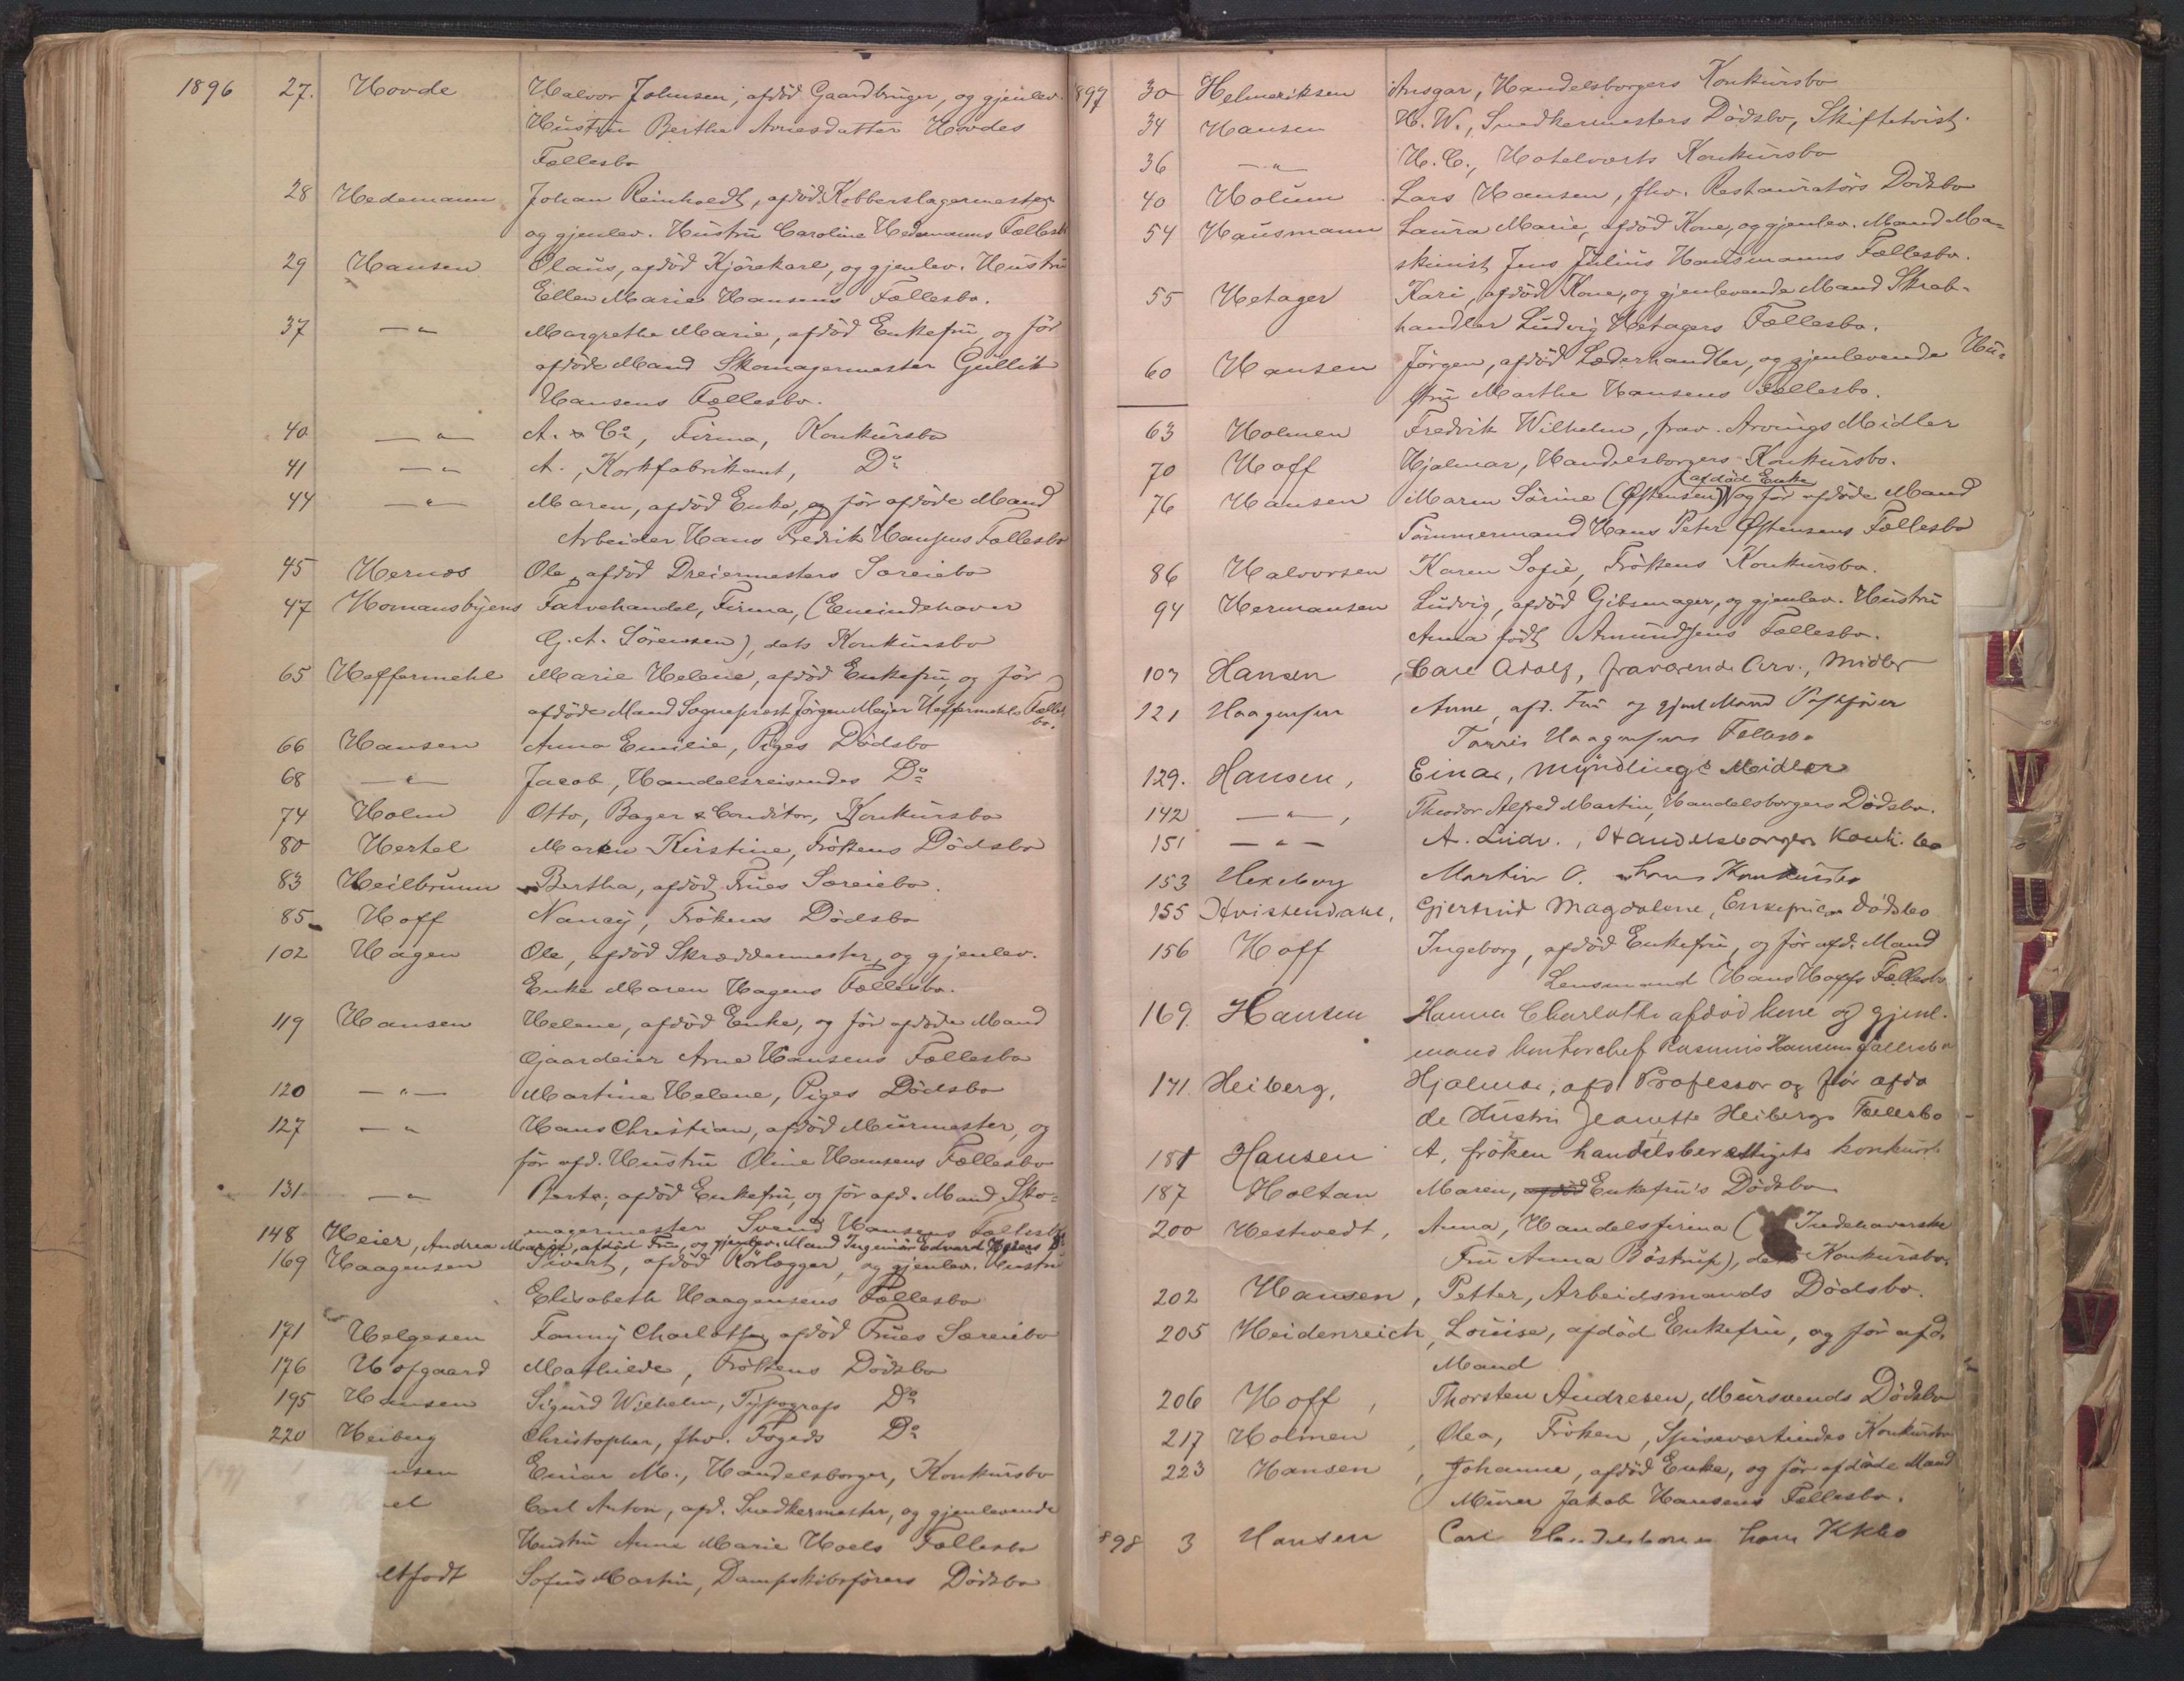 1896 27. Hovde Halvor Johnsen, afdöd Gaardbruger, og gjenlev.
Hustru Berthe Arnesdatter Hovdes
Fællesbo
28 Hedemann Johan Reinholdt, afdöd Kobberslagermester
og gjenlev. Hustru Caroline Hedemanns Fællesb
29 Hansen Olaus, afdöd Kjörekarl, og gjenlev. Hustru
Ellen Marie Hansens Fællesbo.
37 — " Margrethe Marie, afdöd Enkefru, og för
afdöde Mand Skomagermester Gullik
Hansens Fællesbo.
40 — " — A. & Co, Firma, Konkursbo
41 — " — A., Korkfabrikant, Do
44 — " — Maren, afdöd Enke, og för afdöde Mand
Arbeider Hans Fredrik Hansens Fællesbo
45 Hernæs Ole, afdöd Dreiermesters Særeiebo
47 Homansbyens Farvehandel, Firma, (Eneindehaver
G. A. Sörensen), dets Konkursbo
65 Heffermehl Marie Helene, afdöd Enkefru, og för
afdöde Mand Sogneprest Jörgen Meyer Heffermehls Fælles
bo.
66 Hansen Anna Emilie, Piges Dödsbo
68 — " — Jacob, Handelsreisendes Do
74 Holm Otto, Bager & Conditor, Konkursbo
80 Hertel Maren Kirstine, Frökens Dödsbo
83 Heilbrunn Bertha, afdöd Frues Særeiebo.
85 Hoff Nancy, Frökens Dödsbo
102 Hagen Ole, afdöd Skræddermester, og gjenlev.
Enke Maren Hagens Fællesbo.
119 Hansen Helene, afdöd Enke, og för afdöde Mand
Gaardeier Arne Hansens Fællesbo
120 — " — Martine Helene, Piges Dödsbo
127 — " Hans Christian, afdöd Murmester, og
för afd. Hustru Oline Hansens Fællesbo
131 — " Berte, afdöd Enkefru, og för afd. Mand Sko-
magermester Svend Hansens Fællesbo
148 Heier, Andrea Marie, afdöd Fru, og gjenlev. Mand Ingeniör Edvard Heiers
169 Haagensen Sivert, afdöd Rörlægger, og gjenlev. Hustru
Elisabeth Haagensens Fællesbo
171 Helgesen Fanny Charlotte, afdöd Frues Særeiebo
176 Hofgaard Mathilde, Frökens Dödsbo
195 Hansen Sigurd Wilhelm, Typografs Do
220 Heiberg Christopher, fhv. Fogeds Do
nsen Einar M., Handelsborger, Konkursbo
el Carl Anton, afd. Snedkermester, og gjenlevende
Hustru Anne Marie Hoels Fællesbo
ltfodt Sofus Martin, Dampskibsförers Dödsbo
897 30 Helmeriksen Ansgar, Handelsborgers Konkursbo
34 Hansen H. W., Snedkermesters Dödsbo, Skiftetvist.
36 — " — H. C., Hotelværts Konkursbo
40 Holum Lars Hansen, fhv. Restauratörs Dödsbo
54 Hausmann Laura Marie, afdöd Kone, og gjenlev. Mand Ma-
skinist Jens Julius Hausmanns Fællesbo.
55 Hetager Kari, afdöd Kone, og gjenlevende Mand Skrab-
handler Ludvig Hetagers Fællesbo.
60 Hansen Jörgen, afdöd Læderhandler, og gjenlevende Hu-
stru Marthe Hansens Fællesbo.
63 Holmen Fredrik Wilhelm, frav. Arvings Midler
70 Hoff Hjalmar, Handelsborgers Konkursbo.
afdöd Enke
76 Hansen Maren Sörine (Östensen) og för afdöde Mand
Tömmermand Hans Peter Östensens Fællesbo
86 Halvorsen Karen Sofie, Frökens Konkursbo.
94 Hermansen Ludvig, afdöd Gibsmager, og gjenlev. Hustru
Anna födt Amundsens Fællesbo.
107 Hansen, Carl Adolf, fraværende Arv., Midler
121 Haagensen Anne, afd. Fru og gjenl Mand
Tarris Haagensens Fellesbo
129. Hansen, Einar, Myndlings Midler
142 — " —, Theodor Alfred Martin, Handelsborgers Dödsbo.
151 — " — A. Ludv., Handelsborgers Konk. bo
153 Hexeberg Martin O. hans Konkursbo
155 Hvistendahl, Gjertrud Magdalene, Enkefrues Dödsbo
156 Hoff Ingeborg, afdöd Enkefru, og för afd. Mand
Lensmand Hans Hoffs Fællesbo
169. Hansen Hanna Charlotte afdöd kone og gjenl.
mand kontorchef Rasmus Hansens fællesbo
171. Heiberg, Hjalmar, afd. Professor og för afdö
de Hustru Jeanette Heibergs Fællesbo
181 Hansen A, fröken handelsberettigets konkursb
187 Holtan Maren, afdöd Enkefru's Dödsbo
200 Hestvedt, Anna, Handelsfirma (Indehaverske
Fru Anna Böstrup), dets Konkursbo.
202 Hansen, Petter, Arbeidsmands Dödsbo.
205 Heidenreich, Louise, afdöd Enkefru, og för afd.
Mand
206 Hoff, Thorsten Andresen, Mursvends Dödsbo
217 Holmen, Olea, Fröken, Spiseværtindes Konkursbo
223 Hansen, Johanne, afdöd Enke, og för afdöde Mand
Murer Jakob Hansens Fællesbo.
898 3 Hansen Carl Handelsborger hans Kkbo